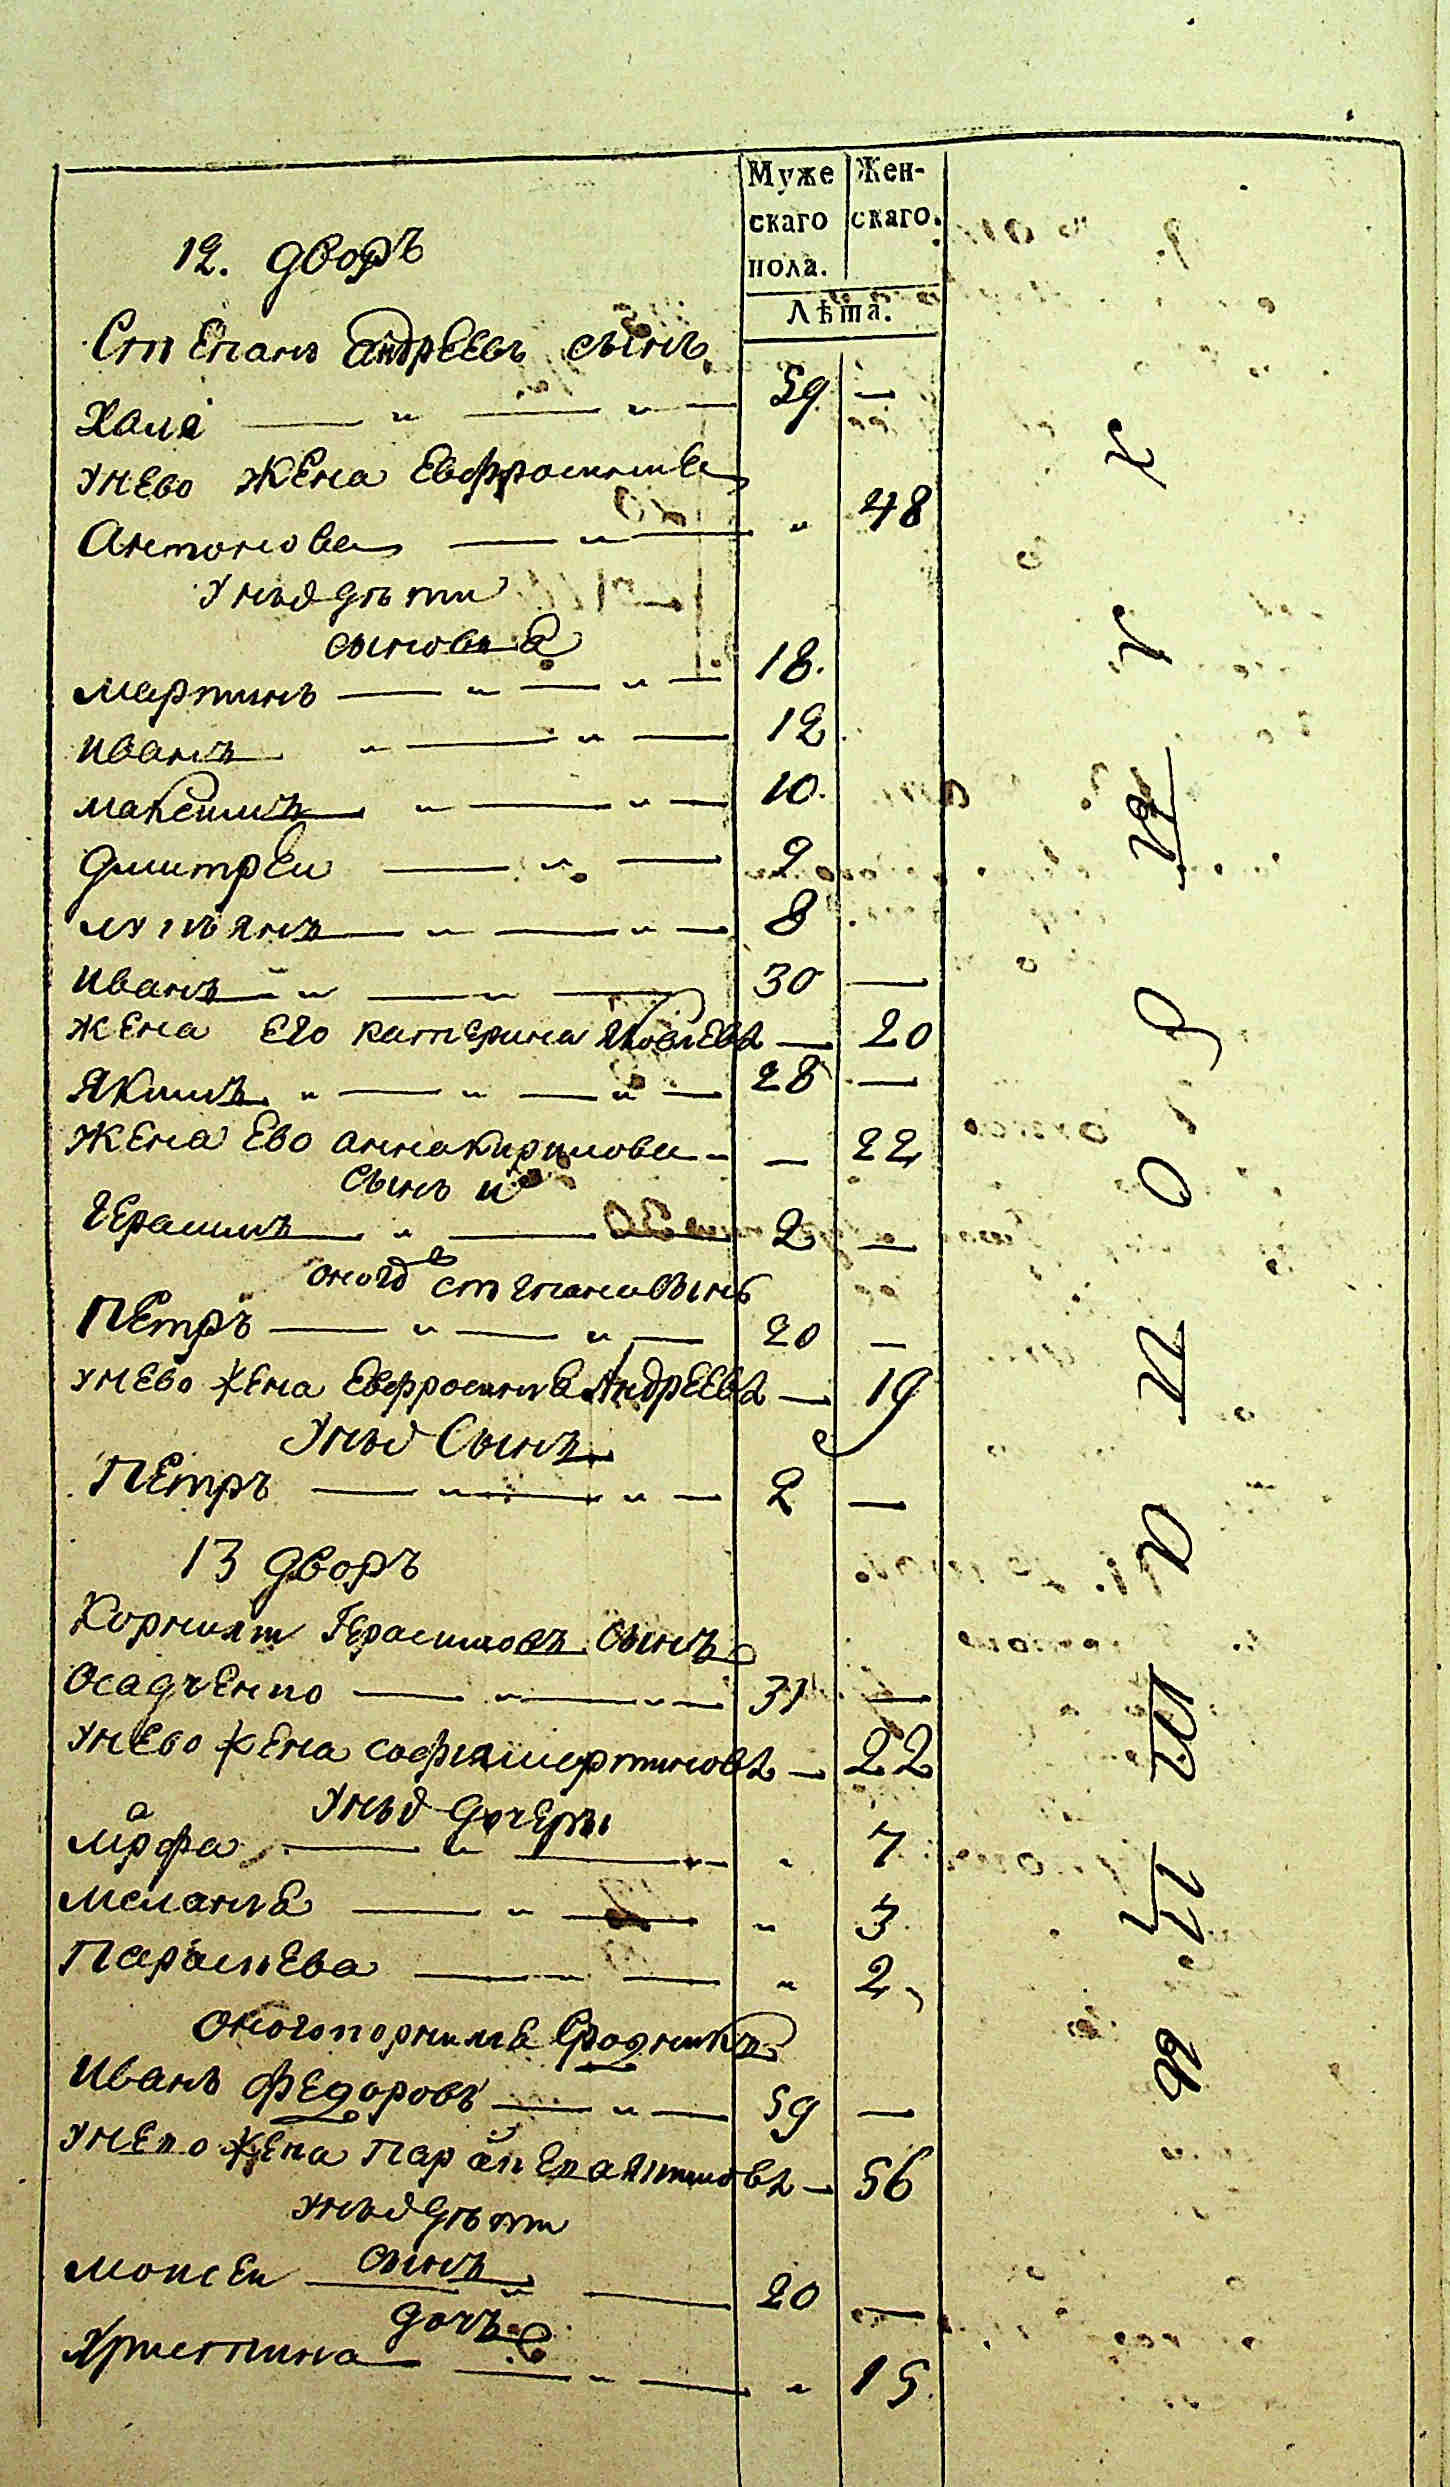 Муже Жен-
скаго скаго.
пола.
Лѣта.
12. дворъ
Степанъ Андреевъ сынъ
59 —
унево жена Евфросиния
Антонова — " — " 48
унихъ дѣти
сыновья
Мартинъ — " — " — 18.
Иванъ " — " — 12
Максимъ — " — " — 10.
Дмитреи — " — 9
— " — " — 8
Иванъ — " — " — 30 —
жена Его катерина Яковлева — 20
Якимъ " — " — " — 28 —
жена Ево анна Кирилова " — 22
сынъ их
Герасимъ — " — 2 —
оного Степана сынъ
Петръ — " — " — 20 —
унево жена Евфросиния Андреева — 19
унихъ Сынъ
Петръ — " — " — 2 —
13 дворъ
Корнилии Герасимовъ сынъ
Осадченко — " — " — 31 —
унево жена софия мартинова — 22
унихъ дочери
Марфа — " — " 7
Мелания — " — " 3
Параскева — " — " 2
оного корнилия сродникъ
Иванъ Федоровъ — " — 59 —
унево жена Параскева — 56
унихъ дѣти
сынъ
Моисеи — " — 20 —
дочь
Христина — " — " 15